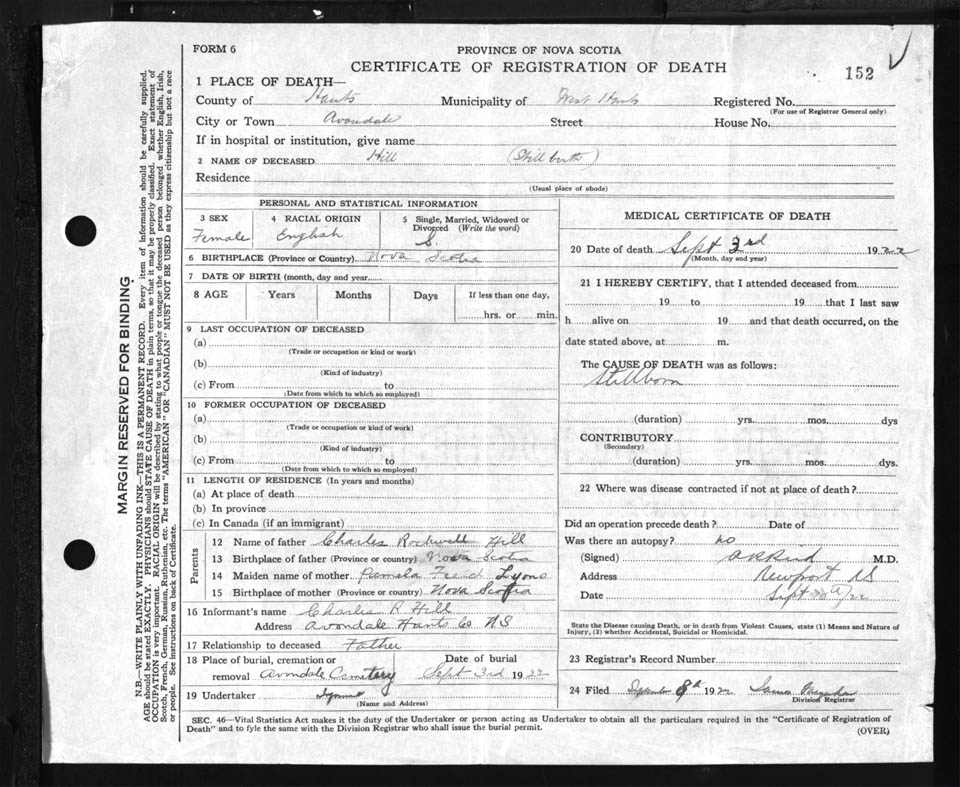 FORM 6
PROVINCE OF NOVA SCOTIA
CERTIFICATE OF REGISTRATION OF DEATH
152
1 PLACE OF DEATH—
County of Hants Municipality of West Hants Registered No.
(For use of Registrar General only)
City or Town Avondale Street House No.
If in hospital or institution, give name
2 NAME OF DECEASED Hill (Stillbirth)
Residence
(Usual place of abode)
PERSONAL AND STATISTICAL INFORMATION
3 SEX 4 RACIAL ORIGIN 5 Single, Married, Widowed or Divorced (Write the word)
Female English S.
6 BIRTHPLACE (Province or Country) Nova Scotia
7 DATE OF BIRTH (month, day and year)
8 AGE Years Months Days If less than one day,
hrs. or min.
9 LAST OCCUPATION OF DECEASED
(a)
(Trade or occupation or kind or work)
(b)
(Kind of industry)
(c) From to
(Date from which to which so employed)
10 FORMER OCCUPATION OF DECEASED
(a)
(Trade or occupation or kind of work)
(b)
(Kind of industry)
(c) From to
(Date from which to which so employed)
11 LENGTH OF RESIDENCE (In years and months)
(a) At place of death
(b) In province
(c) In Canada (if an immigrant)
Parents
12 Name of father Charles Rockwell Hill
13 Birthplace of father (Province or Country) Nova Scotia
14 Maiden name of mother Pamela Lyons
15 Birthplace of mother (Province or country) Nova Scotia
16 Informant's name Charles R Hill
Address Avondale Hants Co NS
17 Relationship to deceased Father
18 Place of burial, cremation or removal Avondale Cemetery Date of burial Sept 3rd 1922
19 Undertaker
(Name and Address)
MEDICAL CERTIFICATE OF DEATH
20 Date of death Sept 3rd 1922
(Month, day and year)
21 I HEREBY CERTIFY, that I attended deceased from
19 to 19 that I last saw
h alive on 19 and that death occurred, on the
date stated above, at m.
The CAUSE OF DEATH was as follows:
Stillborn
(duration) yrs. mos. dys
CONTRIBUTORY
(Secondary)
(duration) yrs. mos. dys.
22 Where was disease contracted if not at place of death?
Did an operation precede death? Date of
Was there an autopsy? no
(Signed) M.D.
Address Newport NS
Date Sept
State the Disease causing Death, or in death from Violent Causes, state (1) Means and Nature of
Injury, (2) whether Accidental, Suicidal or Homicidal.
23 Registrar's Record Number
24 Filed September 8th 1922
Division Registrar
SEC. 46—Vital Statistics Act makes it the duty of the Undertaker or person acting as Undertaker to obtain all the particulars required in the "Certificate of Registration of
Death" and to fyle the same with the Division Registrar who shall issue the burial permit.
(OVER)
MARGIN RESERVED FOR BINDING
N.B.—WRITE PLAINLY WITH UNFADING INK—THIS IS A PERMANENT RECORD. Every item of information should be carefully supplied.
AGE should be stated EXACTLY. PHYSICIANS should STATE CAUSE OF DEATH in plain terms, so that it may be properly classified. Exact statement of
OCCUPATION is very important. RACIAL ORIGIN will be described by stating to what people or tongue the deceased person belonged whether English, Irish,
Scotch, French, German, Russian, Ruthenian, etc. The terms "AMERICAN" OR "CANADIAN" MUST NOT BE USED as they express citizenship but not a race
or people. See instructions on back of Certificate.